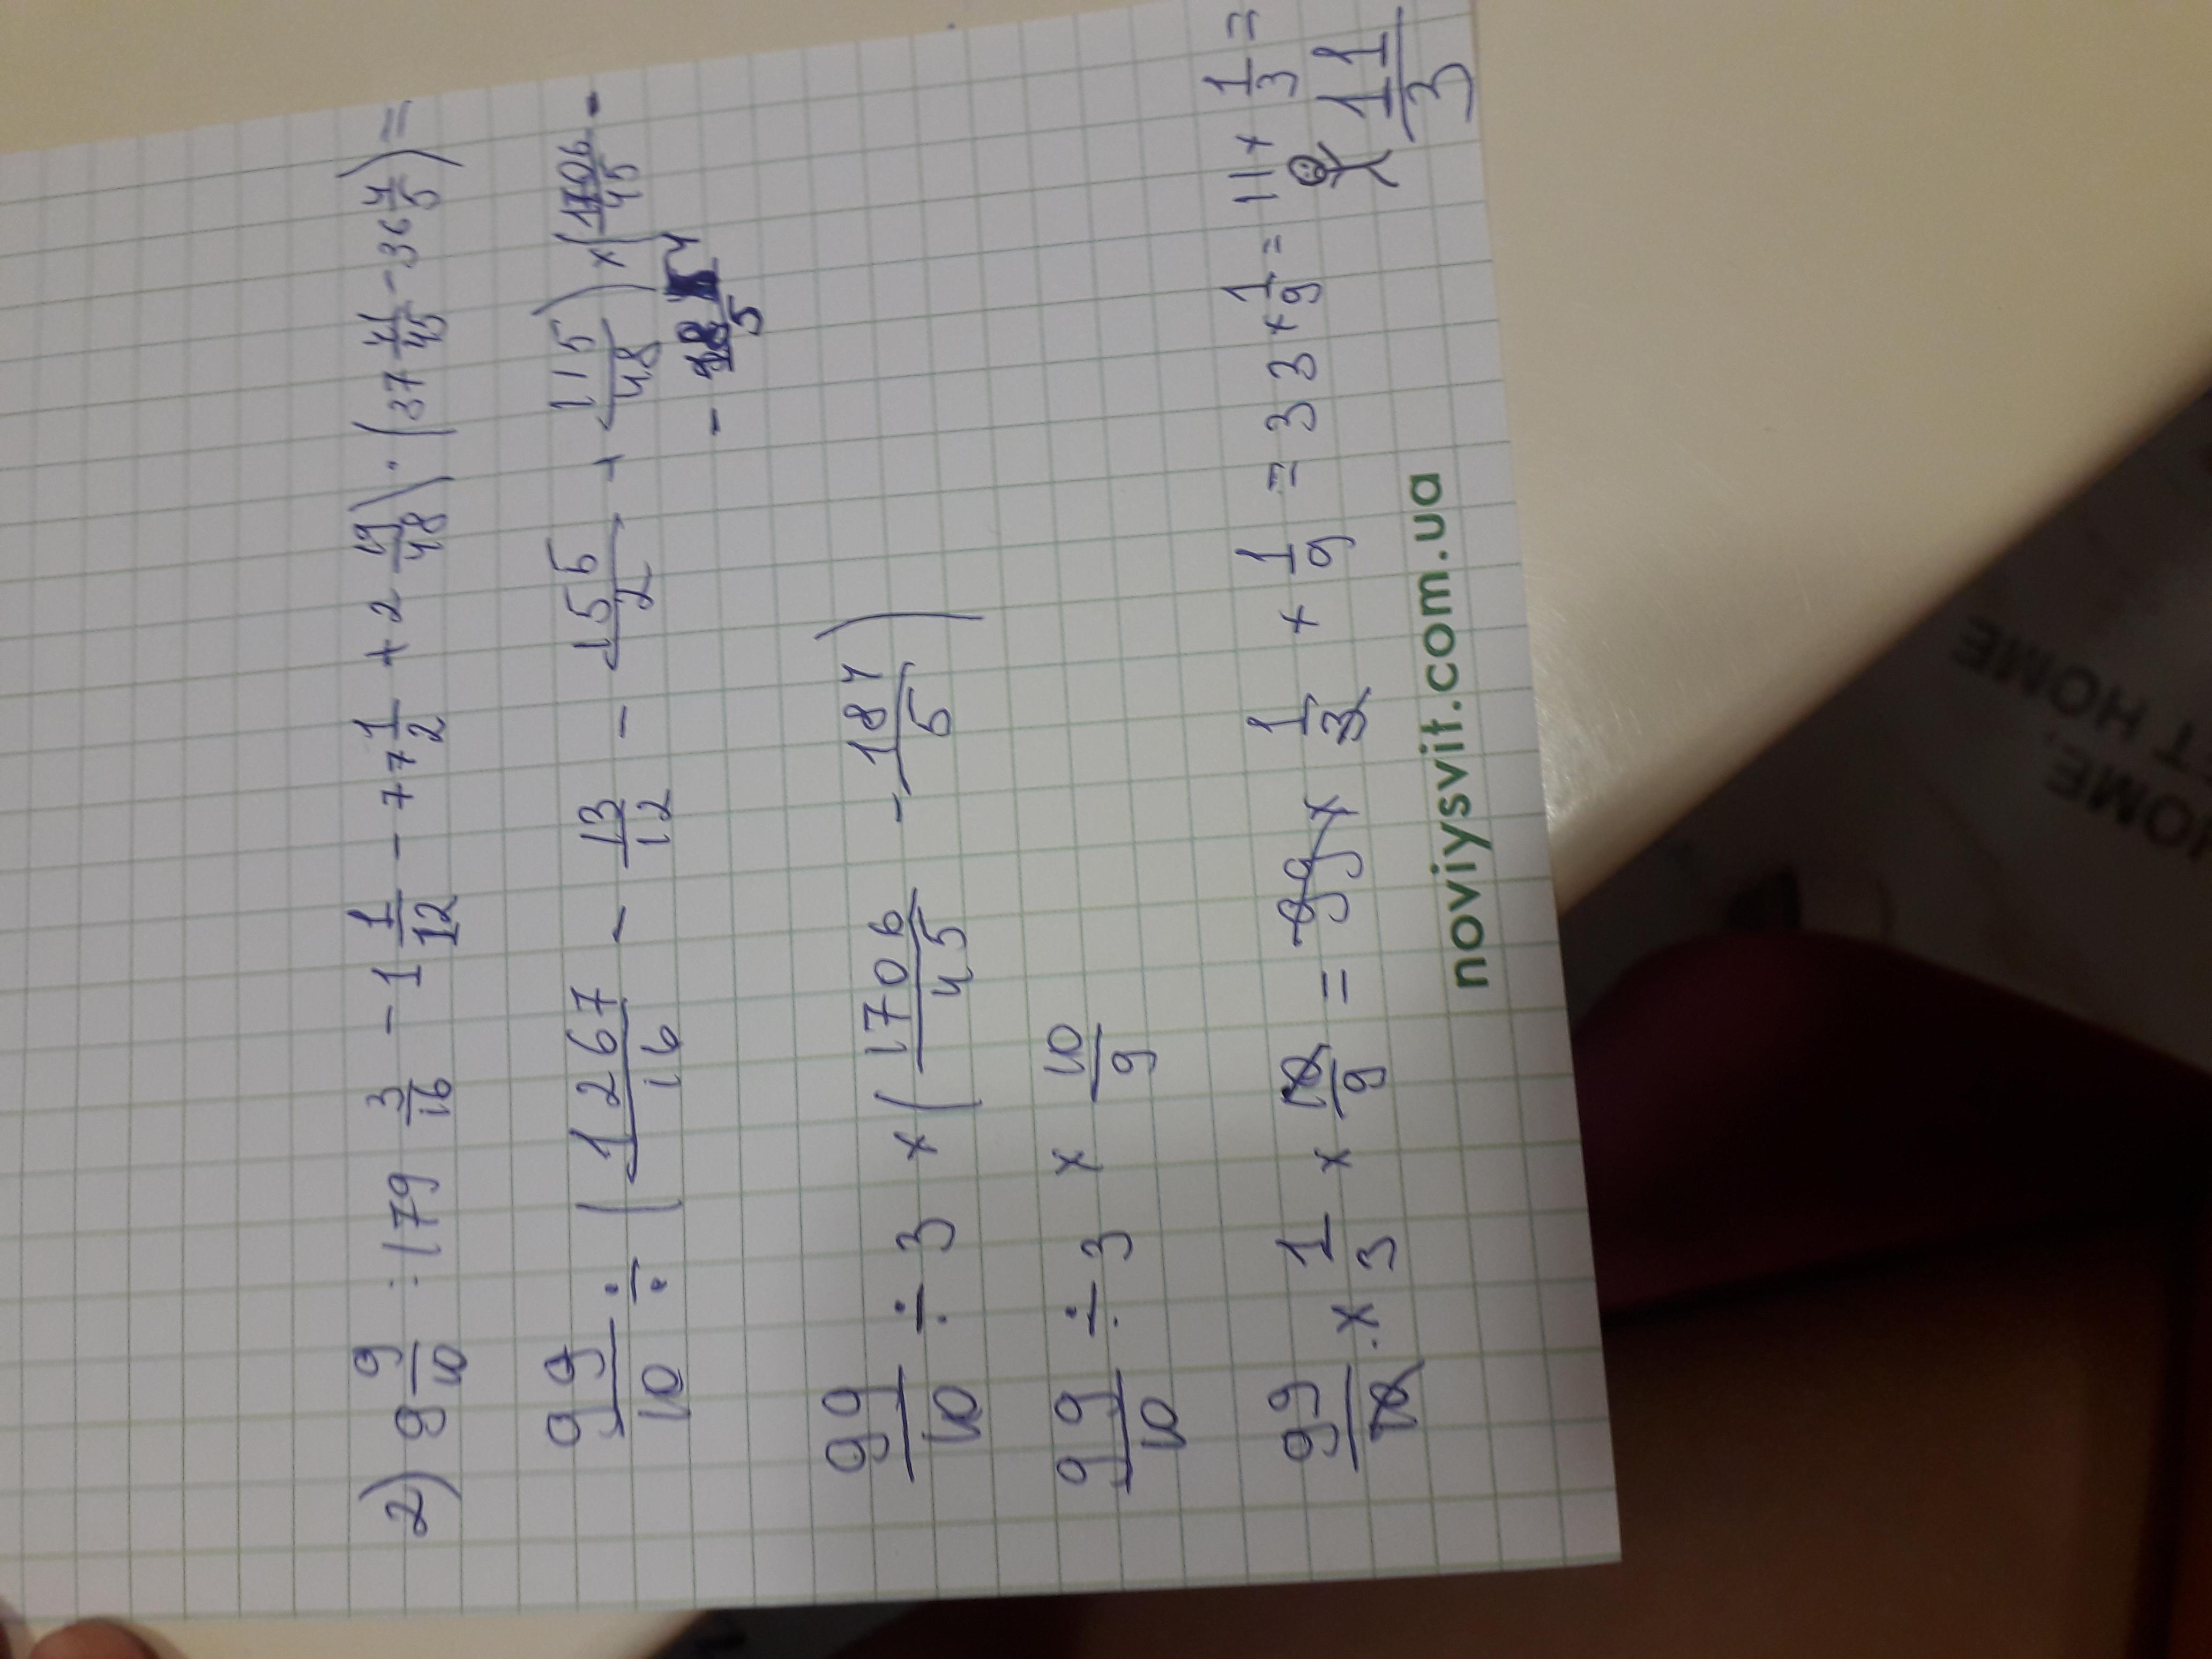 2) 9 9/10 : (79 3/16 - 1 1/12 - 77 1/2 + 2 19/48) · (37 41/45 - 36 4/5) =
99/10 ÷ (1267/16 - 13/12 - 155/2 + 115/48) × (1706/45 -
- 184/5
99/10 ÷ 3 × (1706/45 - 184/5)
99/10 ÷ 3 × 10/9
99/10 · × 1/3 × 10/9 = 99 × 1/3 × 1/9 = 33 × 1/9 = 11 × 1/3 =
11/3
noviysvit.com.ua
HOME,
T HOME